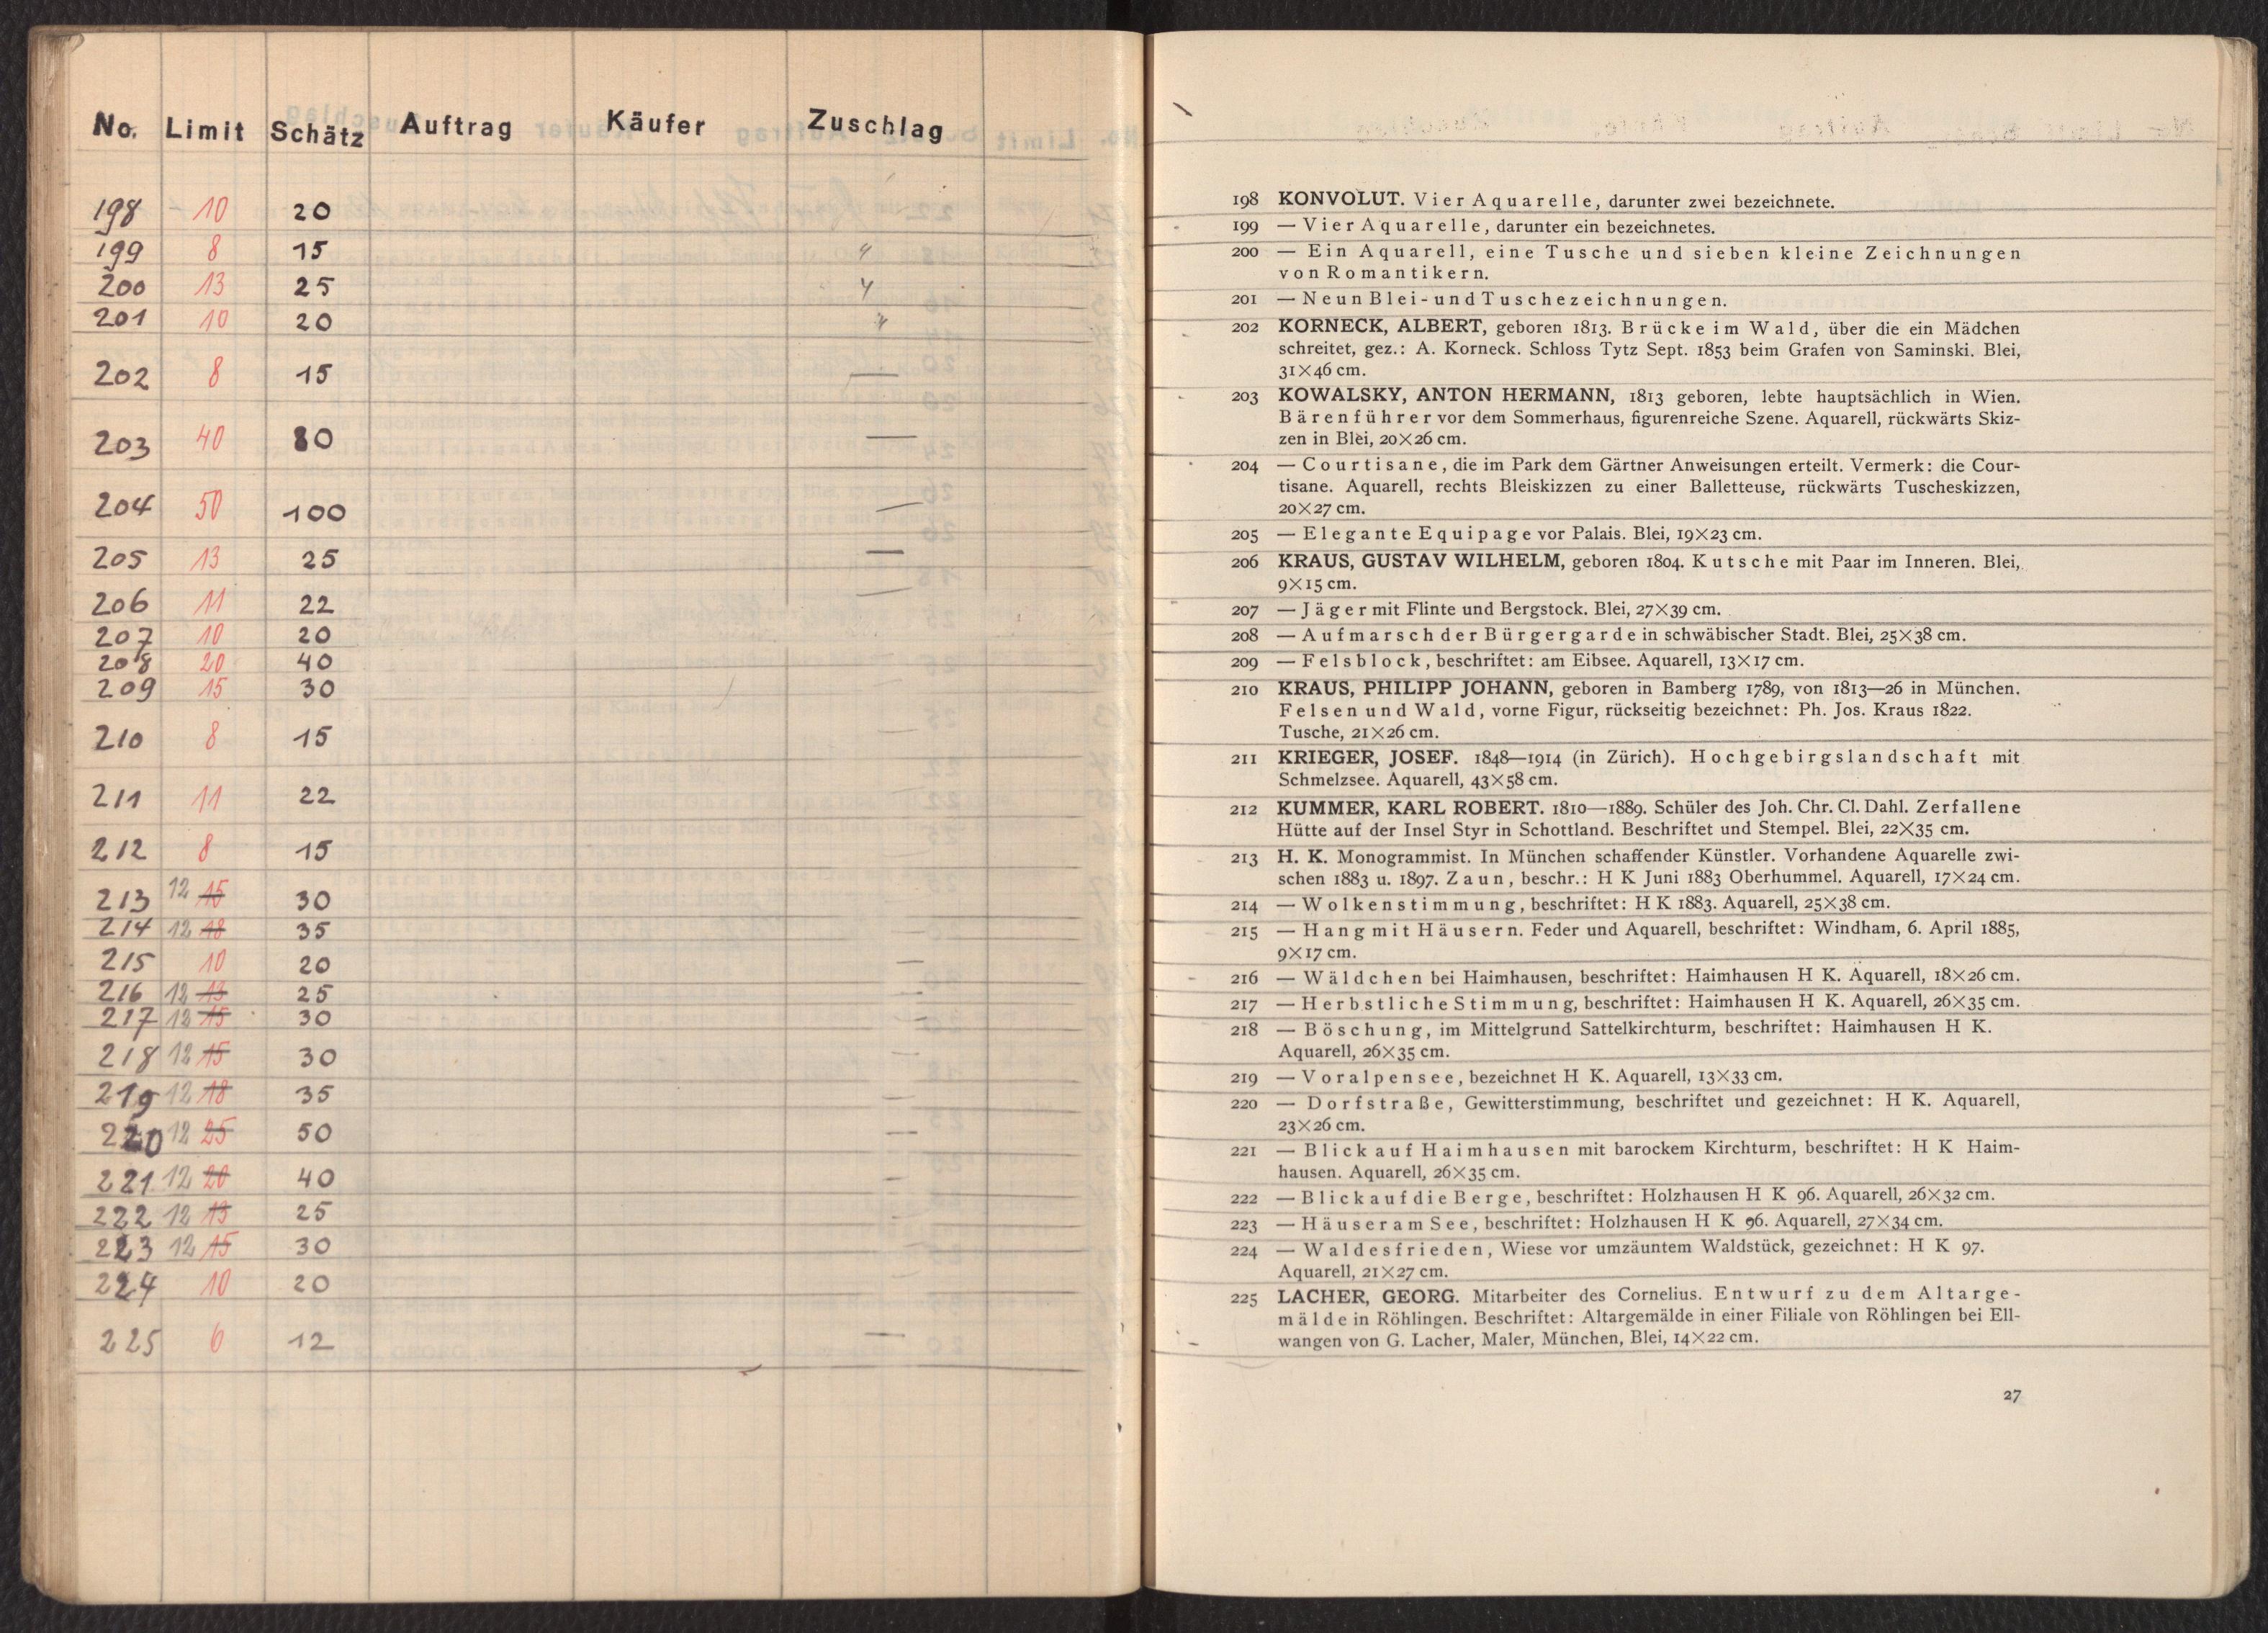 No. Limit Schätz Auftrag Käufer Zuschlag
198 10 20
199 8 15 "
200 13 25 "
201 10 20 "
202 8 15 —
203 40 80 —
204 50 100 —
205 13 25 —
206 11 22 —
207 10 20
208 20 40
209 15 30
210 8 15
211 11 22
212 8 15
213 12 15 30
214 12 18 35 —
215 10 20 —
216 12 13 25 —
217 12 15 30 —
218 12 15 30 —
219 12 18 35 —
220 12 25 50 —
221 12 20 40 —
222 12 13 25 —
223 12 15 30 —
224 10 20 —
225 6 12 —
198 KONVOLUT. Vier Aquarelle, darunter zwei bezeichnete.
199 — Vier Aquarelle, darunter ein bezeichnetes.
200 — Ein Aquarell, eine Tusche und sieben kleine Zeichnungen
von Romantikern.
201 — Neun Blei- und Tuschezeichnungen.
202 KORNECK, ALBERT, geboren 1813. Brücke im Wald, über die ein Mädchen
schreitet, gez.: A. Korneck. Schloss Tytz Sept. 1853 beim Grafen von Saminski. Blei,
31×46 cm.
203 KOWALSKY, ANTON HERMANN, 1813 geboren, lebte hauptsächlich in Wien.
Bärenführer vor dem Sommerhaus, figurenreiche Szene. Aquarell, rückwärts Skiz-
zen in Blei, 20×26 cm.
204 — Courtisane, die im Park dem Gärtner Anweisungen erteilt. Vermerk: die Cour-
tisane. Aquarell, rechts Bleiskizzen zu einer Balletteuse, rückwärts Tuscheskizzen,
20×27 cm.
205 — Elegante Equipage vor Palais. Blei, 19×23 cm.
206 KRAUS, GUSTAV WILHELM, geboren 1804. Kutsche mit Paar im Inneren. Blei,
9×15 cm.
207 — Jäger mit Flinte und Bergstock. Blei, 27×39 cm.
208 — Aufmarsch der Bürgergarde in schwäbischer Stadt. Blei, 25×38 cm.
209 — Felsblock, beschriftet: am Eibsee. Aquarell, 13×17 cm.
210 KRAUS, PHILIPP JOHANN, geboren in Bamberg 1789, von 1813—26 in München.
Felsen und Wald, vorne Figur, rückseitig bezeichnet: Ph. Jos. Kraus 1822.
Tusche, 21×26 cm.
211 KRIEGER, JOSEF. 1848—1914 (in Zürich). Hochgebirgslandschaft mit
Schmelzsee. Aquarell, 43×58 cm.
212 KUMMER, KARL ROBERT. 1810—1889. Schüler des Joh. Chr. Cl. Dahl. Zerfallene
Hütte auf der Insel Styr in Schottland. Beschriftet und Stempel. Blei, 22×35 cm.
213 H. K. Monogrammist. In München schaffender Künstler. Vorhandene Aquarelle zwi-
schen 1883 u. 1897. Zaun, beschr.: H K Juni 1883 Oberhummel. Aquarell, 17×24 cm.
214 — Wolkenstimmung, beschriftet: H K 1883. Aquarell, 25×38 cm.
215 — Hang mit Häusern. Feder und Aquarell, beschriftet: Windham, 6. April 1885,
9×17 cm.
216 — Wäldchen bei Haimhausen, beschriftet: Haimhausen H K. Aquarell, 18×26 cm.
217 — Herbstliche Stimmung, beschriftet: Haimhausen H K. Aquarell, 26×35 cm.
218 — Böschung, im Mittelgrund Sattelkirchturm, beschriftet: Haimhausen H K.
Aquarell, 26×35 cm.
219 — Voralpensee, bezeichnet H K. Aquarell, 13×33 cm.
220 — Dorfstraße, Gewitterstimmung, beschriftet und gezeichnet: H K. Aquarell,
23×26 cm.
221 — Blick auf Haimhausen mit barockem Kirchturm, beschriftet: H K Haim-
hausen. Aquarell, 26×35 cm.
222 — Blick auf die Berge, beschriftet: Holzhausen H K 96. Aquarell, 26×32 cm.
223 — Häuser am See, beschriftet: Holzhausen H K 96. Aquarell, 27×34 cm.
224 — Waldesfrieden, Wiese vor umzäuntem Waldstück, gezeichnet: H K 97.
Aquarell, 21×27 cm.
225 LACHER, GEORG. Mitarbeiter des Cornelius. Entwurf zu dem Altarge-
mälde in Röhlingen. Beschriftet: Altargemälde in einer Filiale von Röhlingen bei Ell-
wangen von G. Lacher, Maler, München, Blei, 14×22 cm.
27